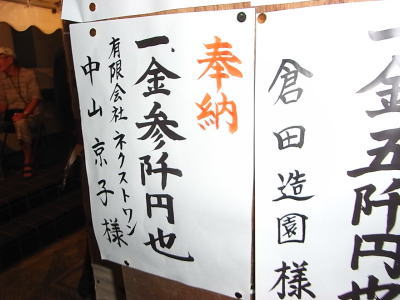 一金五阡円也
倉田造園様
奉納
一、金参阡円也
有限会社ネクストワン
中山京子様